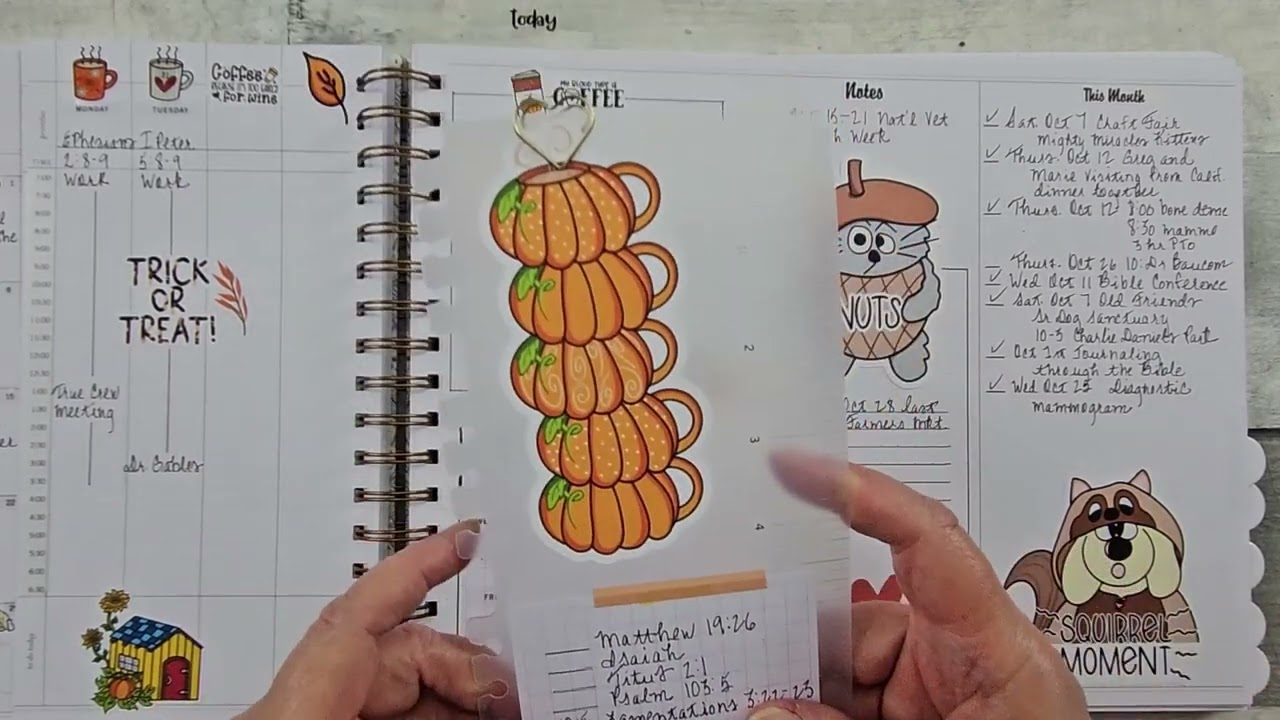 today
MONDAY
TUESDAY
Coffee
for wine
Ephesians
2:8-9
Work
I Peter
5:8-9
Work
TRICK
OR
TREAT!
True Crew
Meeting
Dr. Gables
MY BLOOD TYPE IS
COFFEE
Notes
15-21 Nat'l Vet
Week
NUTS
Oct 28 last
Farmers Mkt
2
3
4
Matthew 19:26
Isaiah
Titus 2:1
Psalm 103:5
Lamentations 3:22-23
This Month
✓ Sat Oct 7 Craft Fair
Mighty Miracles Kittens
✓ Thurs. Oct 12 Greg and
Marie Visiting from Calif.
dinner together
✓ Thurs. Oct 12 8:00 bone dens
8:30 mammo
3 hr PTO
Thurs. Oct 26 10: Dr Baucom
✓ Wed Oct 11 Bible Conference
✓ Sat Oct 7 Old Friends
Sr Dog Sanctuary
10-3 Charlie Daniels Park
✓ Oct 1st Journaling
through the Bible
✓ Wed Oct 25 Diagnostic
mammogram
SQUIRREL
MOMENT